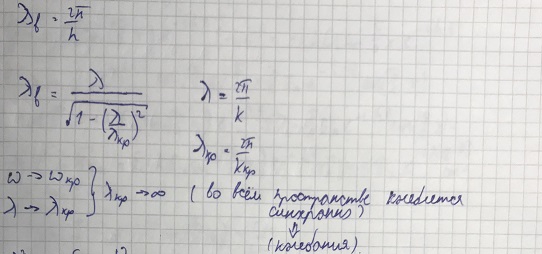 λ_в = 2π/h
λ_в = λ/√(1 - (λ/λ_кр)²)
λ = 2π/k
λ_кр = 2π/k_кр
ω → ω_кр
λ → λ_кр } λ_кр → ∞ (во всём пространстве колеблется
синхронно)
⇓
(колебания)